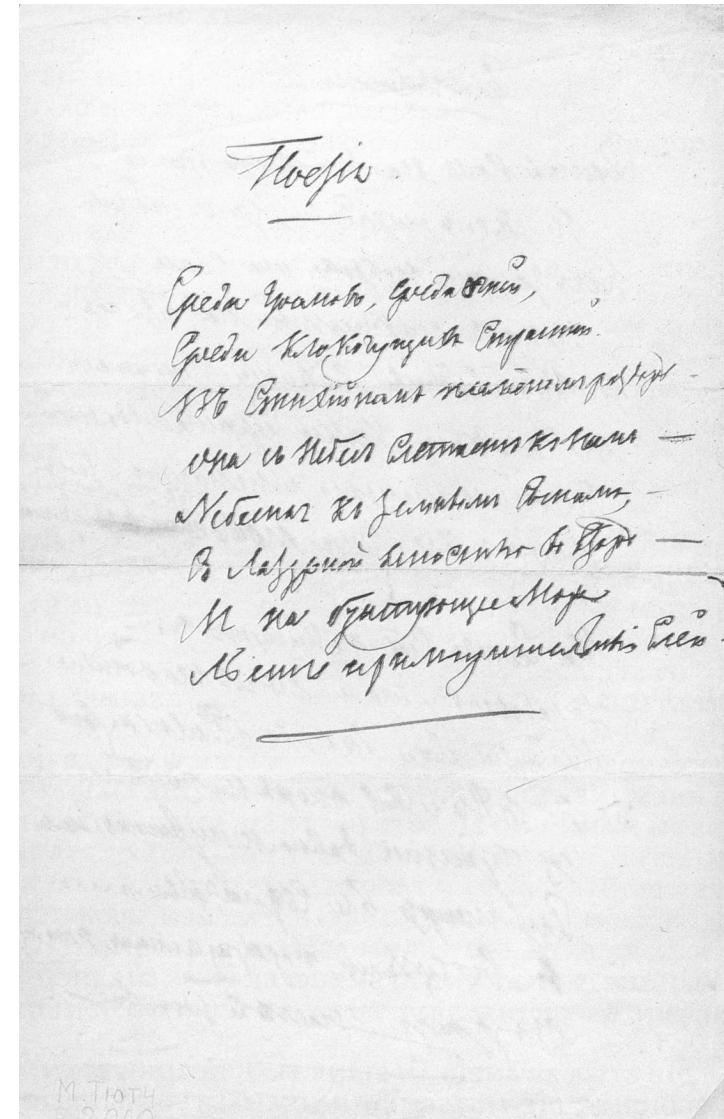 Поезiя
Среди громовъ, среди огней,
Среди клокочущихъ страстей
Въ стихiйномъ пламенномъ раздорѣ
Она съ небесъ слетаетъ къ намъ —
Небесная къ земнымъ сынамъ, —
Съ лазурной ясностью во взорѣ —
И на бунтующее море
Льетъ примирительный елей.
М. Тютч